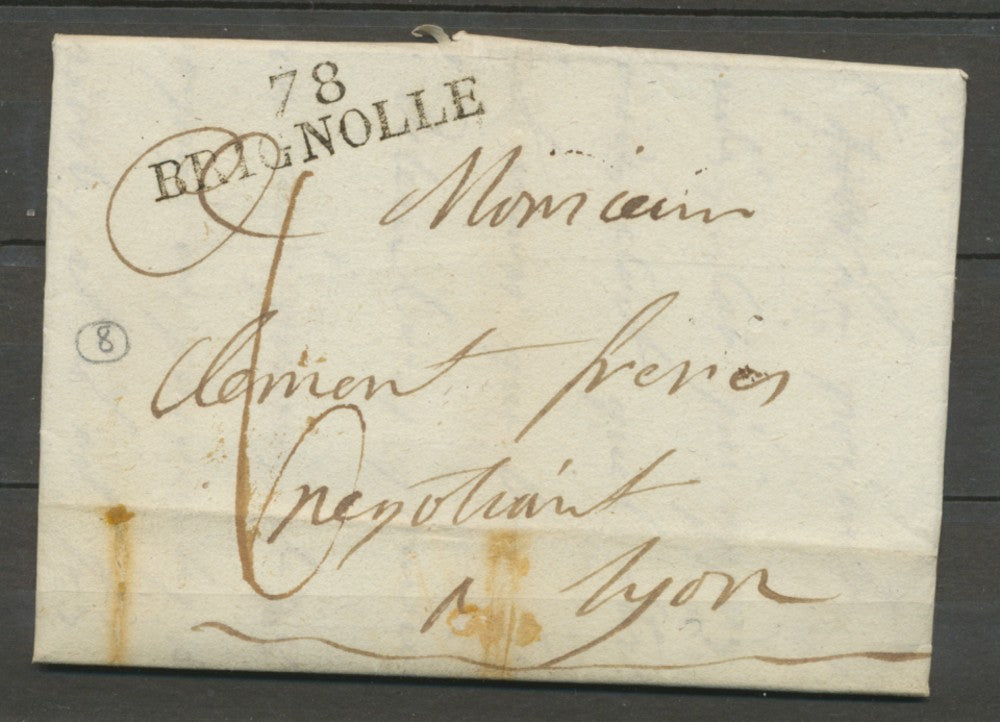 78
BRIGNOLLE
6
Monsieur
8
Clement freres
negotiant
a Lyon